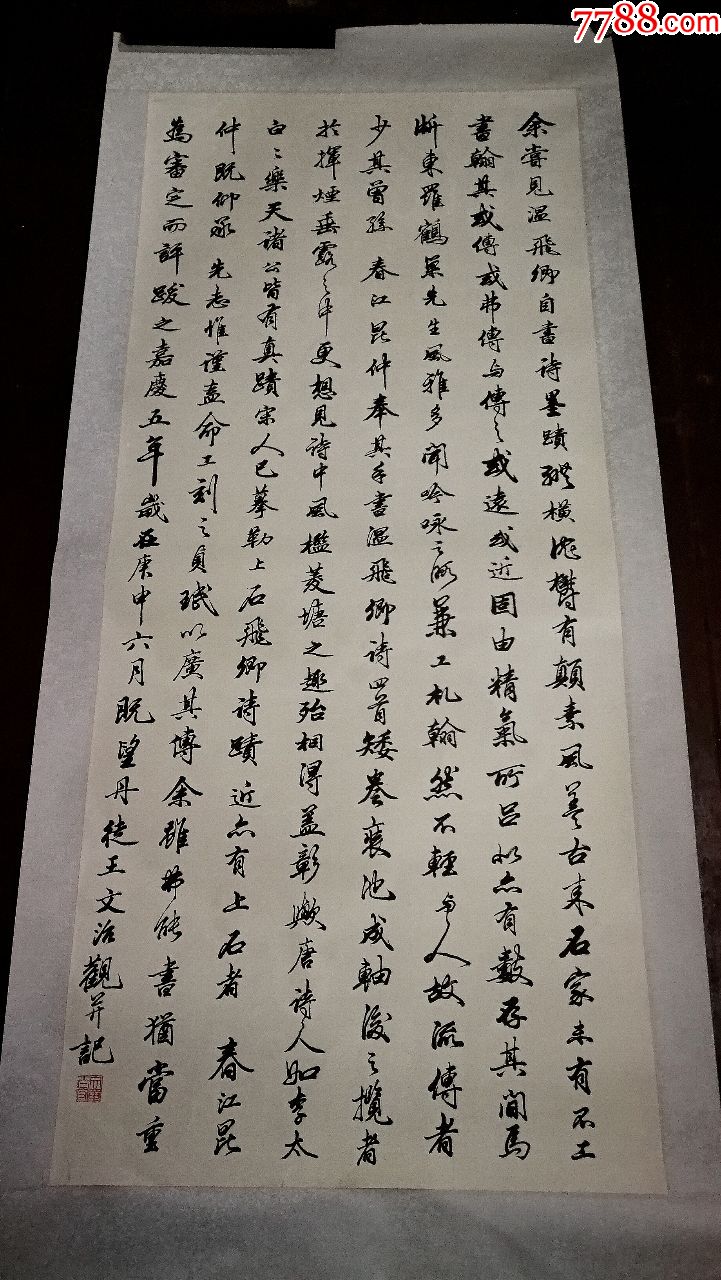 7788.com
余嘗見溫飛卿自書詩墨蹟縱橫沈鬱有顛素風蓋古來石家未有不工
書翰其或傳或弗傳與傳之或遠或近固由精氣所呂然亦有數存其間焉
浙東羅鶴巢先生風雅多聞吟咏之所兼工札翰然不輕與人故流傳者
少其曾孫春江昆仲奉其手書溫飛卿詩四首矮卷裝池成軸後之攬者
於揮煙垂露之中更想見詩中風檻菱塘之趣殆相得益彰歟唐詩人如李太
白白樂天諸公皆有真蹟宋人已摹勒上石飛卿詩蹟近亦有上石者春江昆
仲既仰承先志惟謹盍命工刻之貞珉以廣其傳余雖弗能書猶當重
為審定而評跋之嘉慶五年歲在庚申六月既望丹徒王文治觀并記